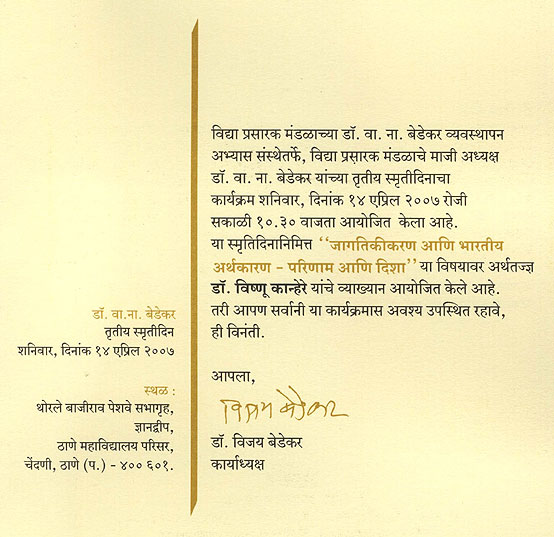 विद्या प्रसारक मंडळाच्या डॉ. वा. ना. बेडेकर व्यवस्थापन
अभ्यास संस्थेतर्फे, विद्या प्रसारक मंडळाचे माजी अध्यक्ष
डॉ. वा. ना. बेडेकर यांच्या तृतीय स्मृतीदिनाचा
कार्यक्रम शनिवार, दिनांक १४ एप्रिल २००७ रोजी
सकाळी १०.३० वाजता आयोजित केला आहे.
या स्मृतिदिनानिमित्त ‘‘जागतिकीकरण आणि भारतीय
अर्थकारण - परिणाम आणि दिशा’’ या विषयावर अर्थतज्ज्ञ
डॉ. विष्णू कान्हेरे यांचे व्याख्यान आयोजित केले आहे.
तरी आपण सर्वांनी या कार्यक्रमास अवश्य उपस्थित रहावे,
ही विनंती.
आपला,
विजय बेडेकर
डॉ. विजय बेडेकर
कार्याध्यक्ष
डॉ. वा.ना. बेडेकर
तृतीय स्मृतीदिन
शनिवार, दिनांक १४ एप्रिल २००७
स्थळ :
थोरले बाजीराव पेशवे सभागृह,
ज्ञानद्वीप,
ठाणे महाविद्यालय परिसर,
चेंदणी, ठाणे (प.) - ४०० ६०१.